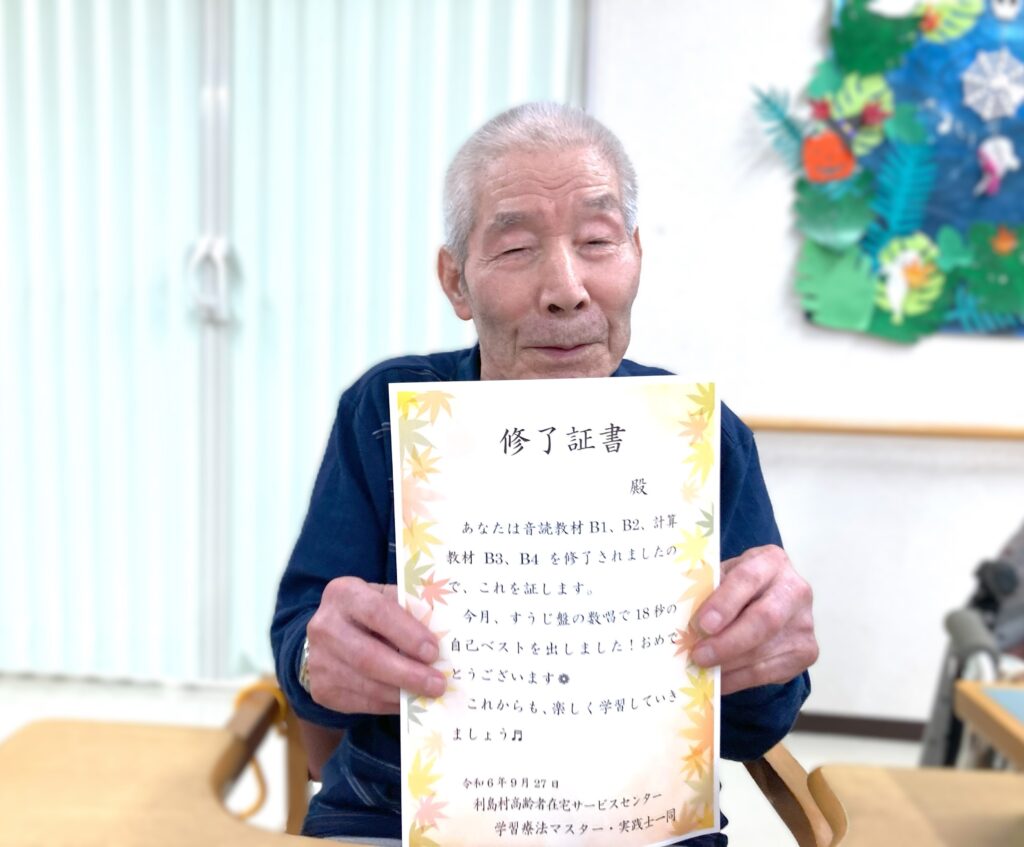 修了証書
殿
あなたは音読教材B1、B2、計算
教材 B3、B4 を修了されましたの
で、これを証します。
今月、すうじ盤の数唱で18秒の
自己ベストを出しました！おめで
とうございます❁
これからも、楽しく学習していき
ましょう♬
令和6年9月27日
利島村高齢者在宅サービスセンター
学習療法マスター・実践士一同